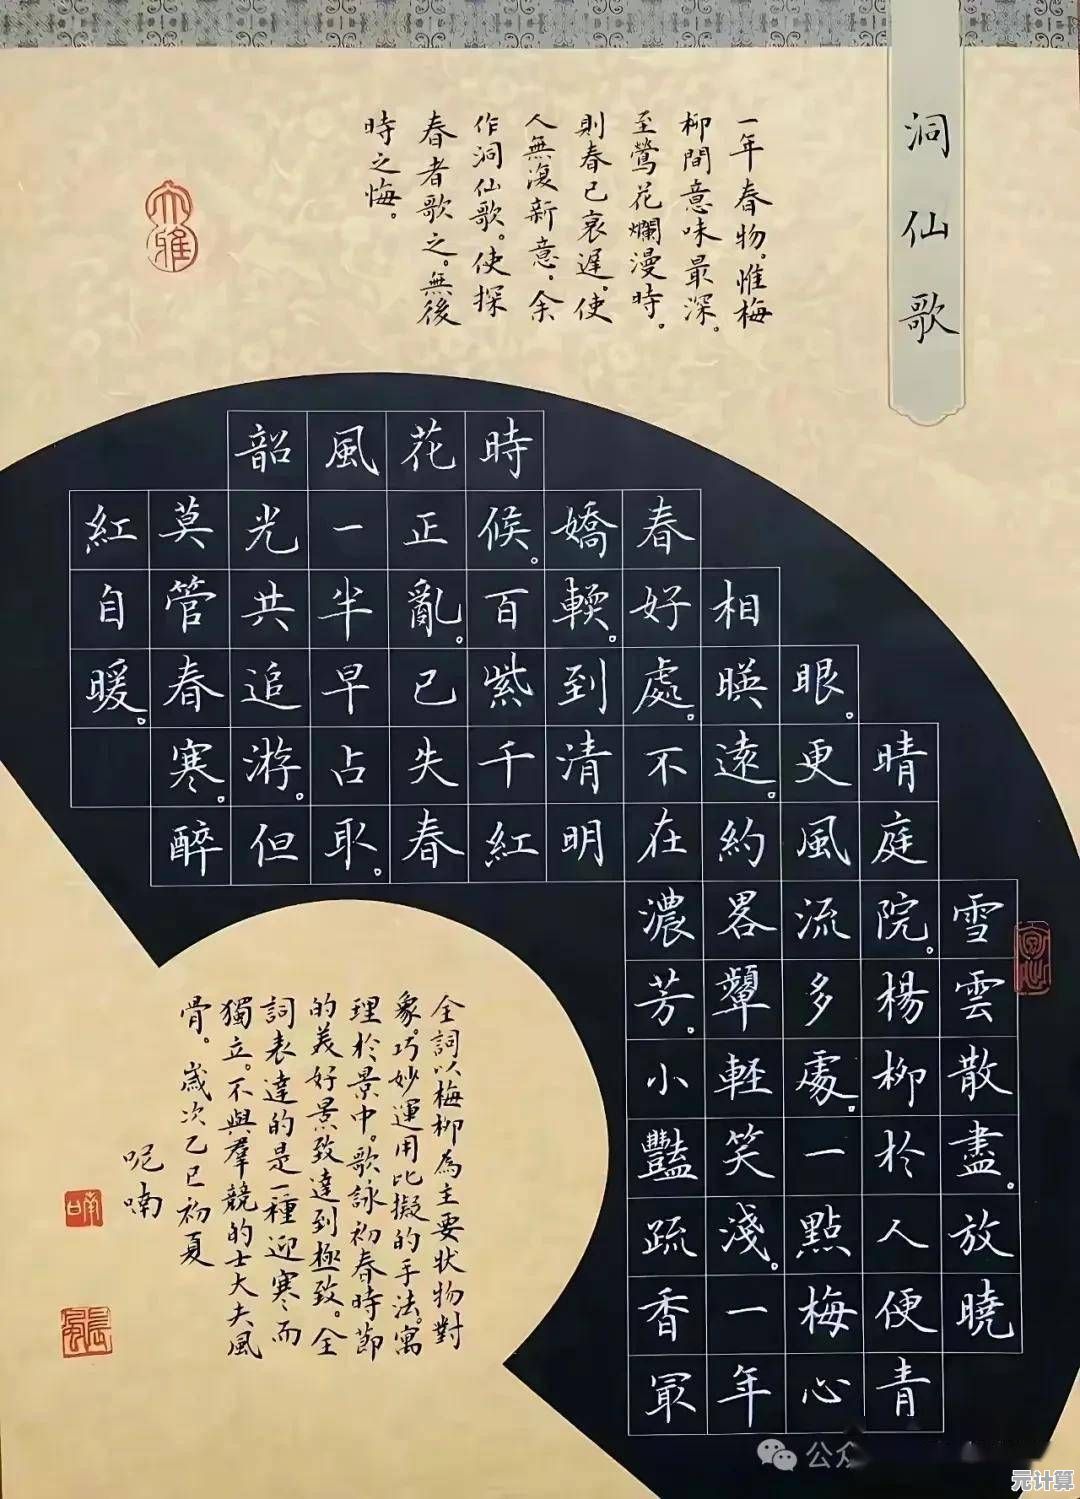 洞仙歌
一年春物。惟梅
柳間意味最深。
至鶯花爛漫時。
則春已衰遲。使
人無復新意。余
作洞仙歌。使探
春者歌之。無後
時之悔。
大雅
雪雲散盡。放曉
晴庭院。楊柳於人便青
眼。更風流多處。一點梅心
相暎遠。約畧顰輕笑淺。一年
春好處。不在濃芳。小豔疏香冣
嬌輭。到清明
時候。百紫千紅
花正亂。已失春
風一半早占取。
韶光共追游。但
莫管春寒。醉
紅自暖。
全詞以梅柳為主要狀物對
象。巧妙運用比擬的手法。寓
理於景中。歌詠初春時節
的美好景致達到極致。全
詞表達的是一種迎寒而
獨立。不與羣競的士大夫風
骨。歲次乙巳初夏
呢喃
公众
元计算